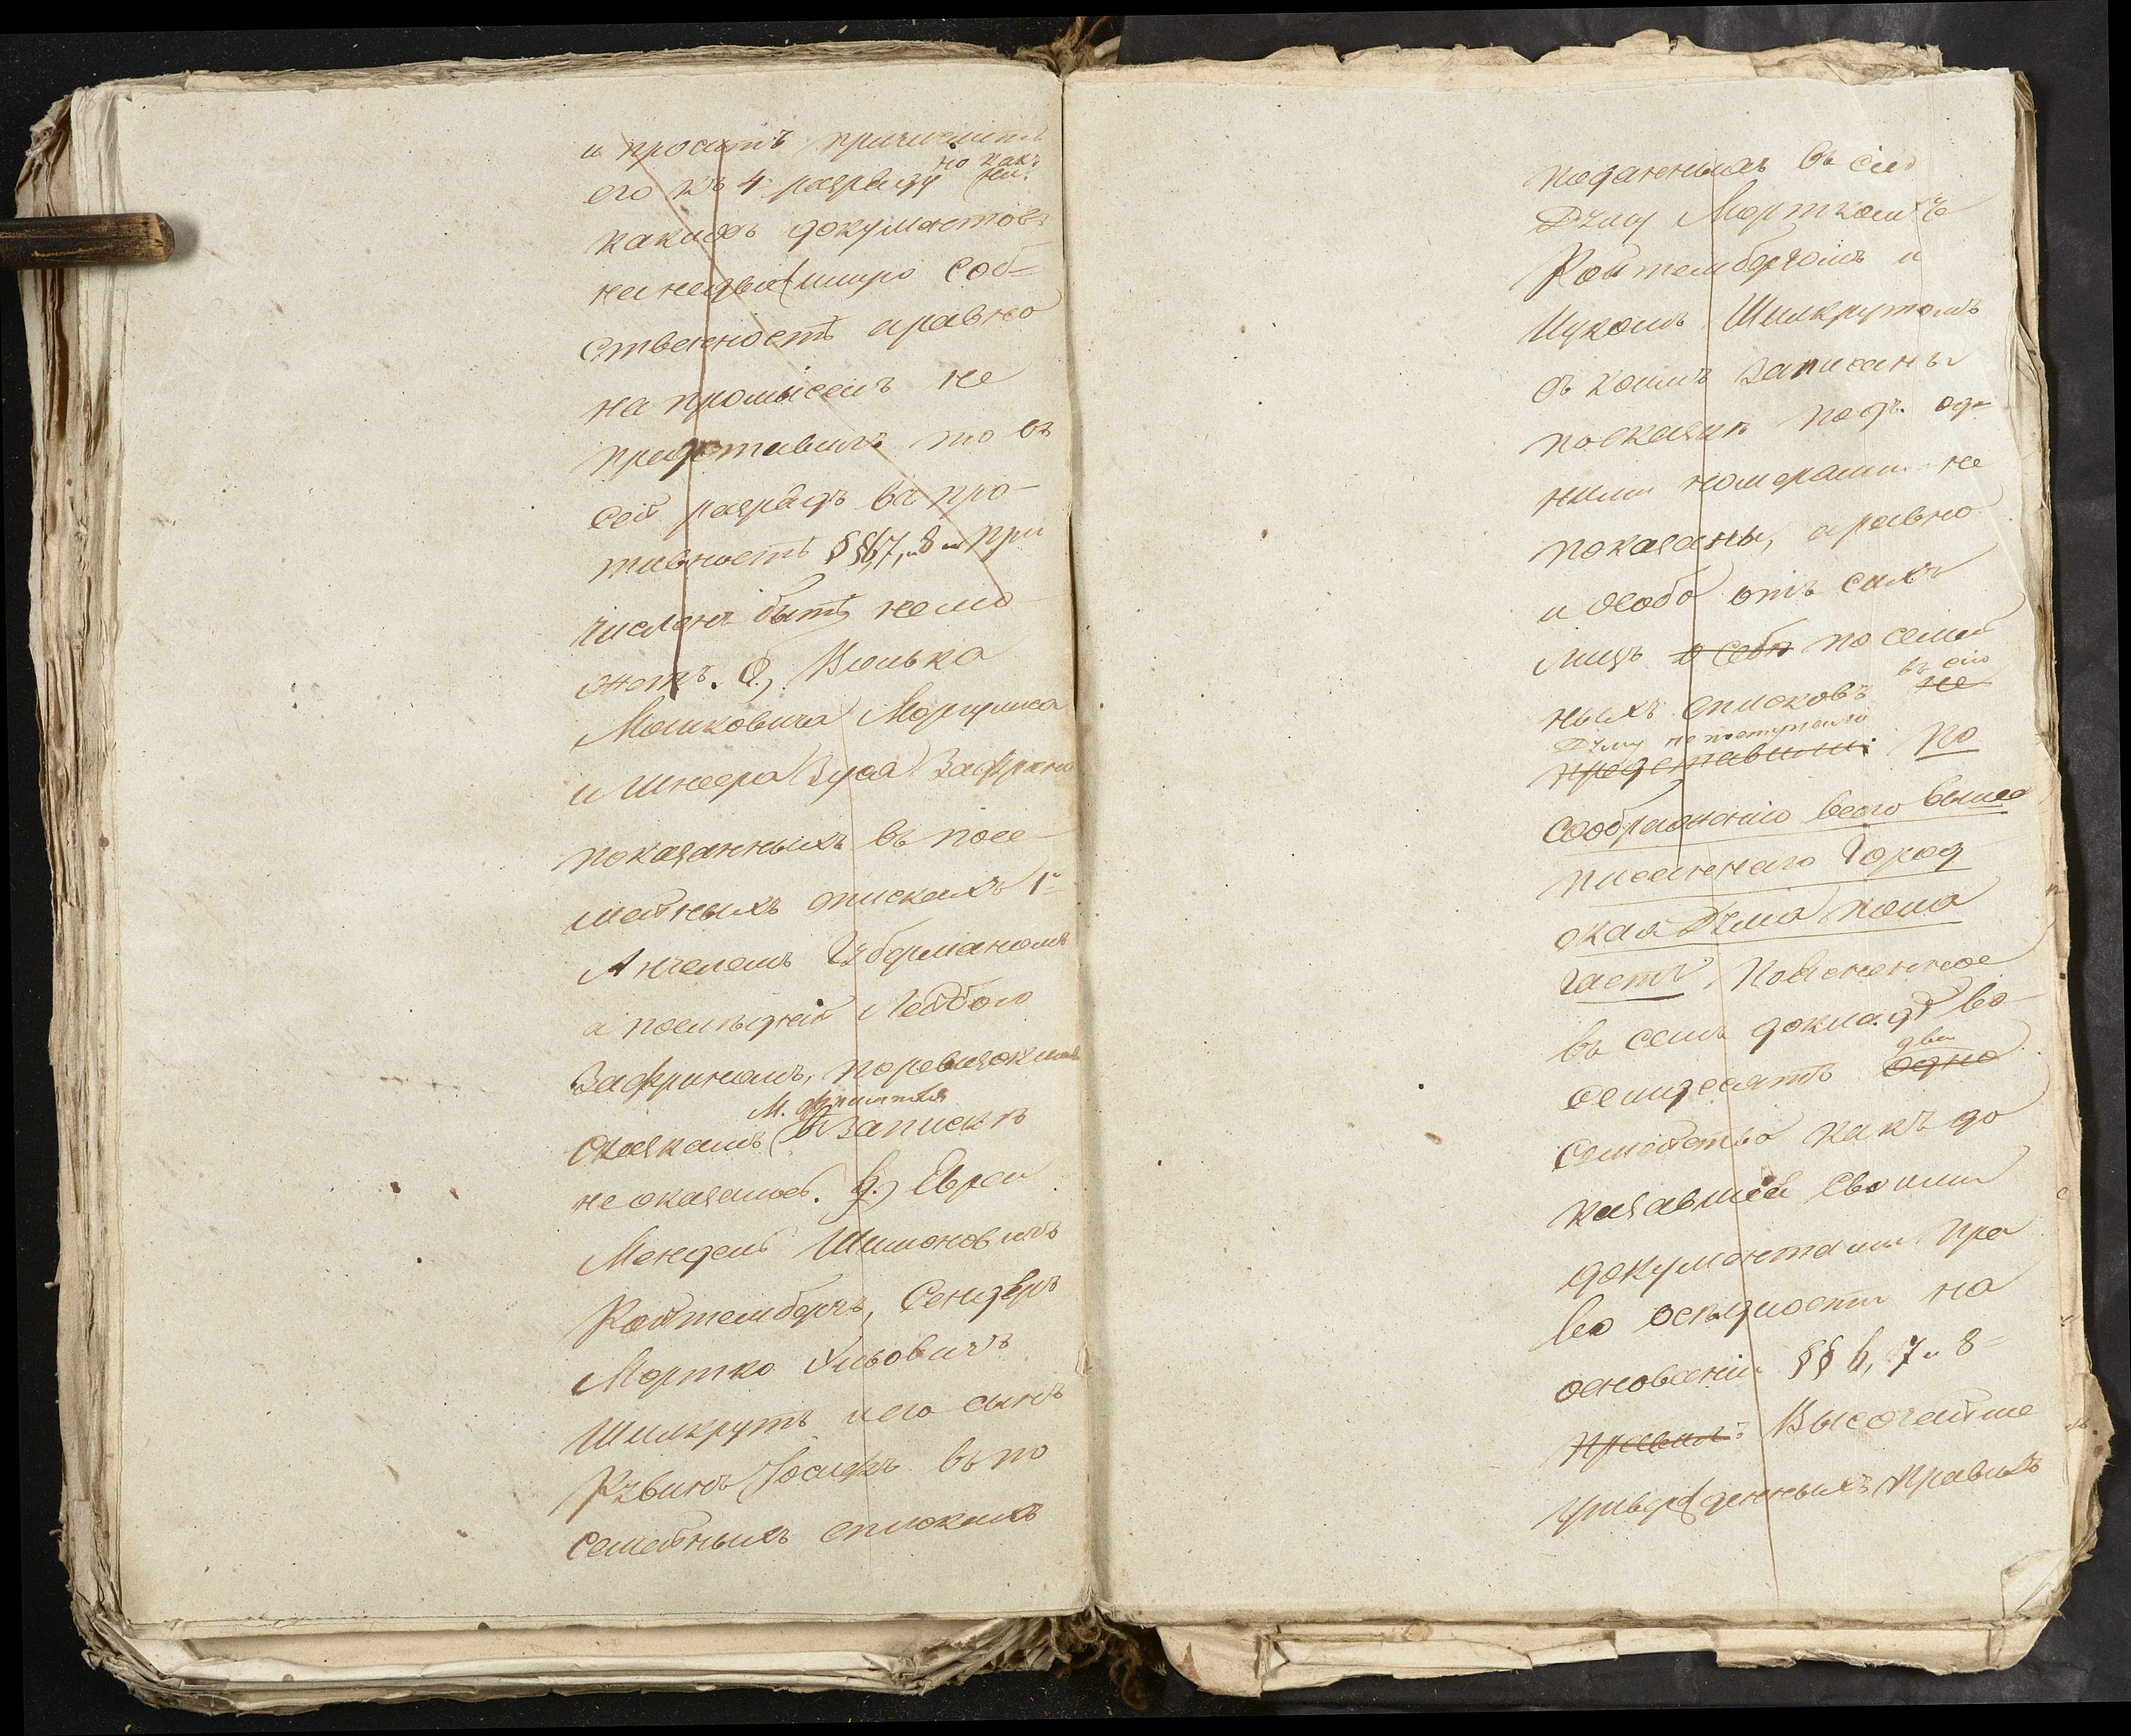 и проситъ причислить
его къ 4 разряду но какъ ни
какихъ документовъ
на недвижимую соб-
ственность аравно
на промыселъ не
представилъ то въ
сей разрядъ въ про-
тивность §§ 6, 7, и 8 при
численъ быть не мо
жетъ. Волька
Мошковича Маргулиса
и Шнеера Зуся Зафрина
показанныхъ въ посе-
мейныхъ спискахъ 1й
Анчелемъ Губерманомъ
а послѣдній Лейбою
Зафриномъ, поревизскимъ
сказкамъ М. въ запискѣ
не оказалось. Евреи
Мендель Шимоновичъ
Ройтембергъ, Сендеръ
Мортко Ульовичъ
Шилкрутъ и его сынъ
Рувинъ Іосифъ въ по
семейныхъ спискахъ
поданныхъ въ сию
Думу Мортхомъ
Ройтембергомъ и
Ицкомъ Шилкрутомъ
съ коимъ записаны
посказкѣ подъ од-
ними номерами не
показаны, аравно
и особо отъ сихъ
лицъ о себѣ по семей
ныхъ списковъ не въ сию
Думу не поступило
представили. По
соображенію всего выше
писаннаго Город
ская Дума пола
гаетъ. Поясненное
въ семъ докладѣ во-
семидесятъ одно два
семейства какъ до
казавшія своими
документами пра
во осѣдлости на
основаніи §§ 6, 7 и 8
правилъ Высочайше
утвержденныхъ правилъ